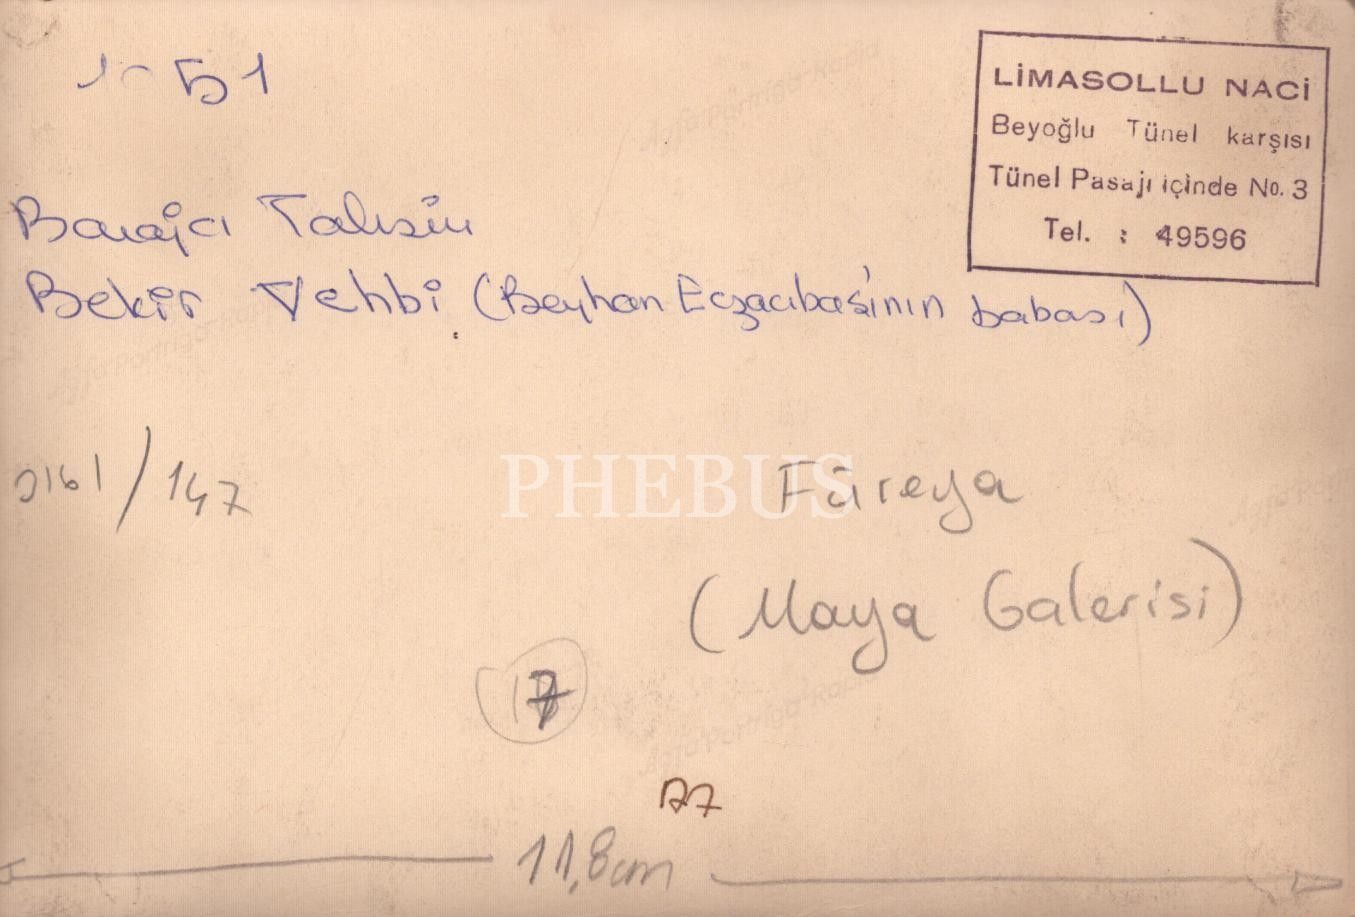 51
LİMASOLLU NACİ
Beyoğlu Tünel karşısı
Tünel Pasajı içinde No. 3
Tel. : 49596
Barajcı Tahsin
Bekir Vehbi (Beyhan Eczacıbaşı'nın babası)
/147
PHEBUS
Füreya
(Maya Galerisi)
7
11,8cm